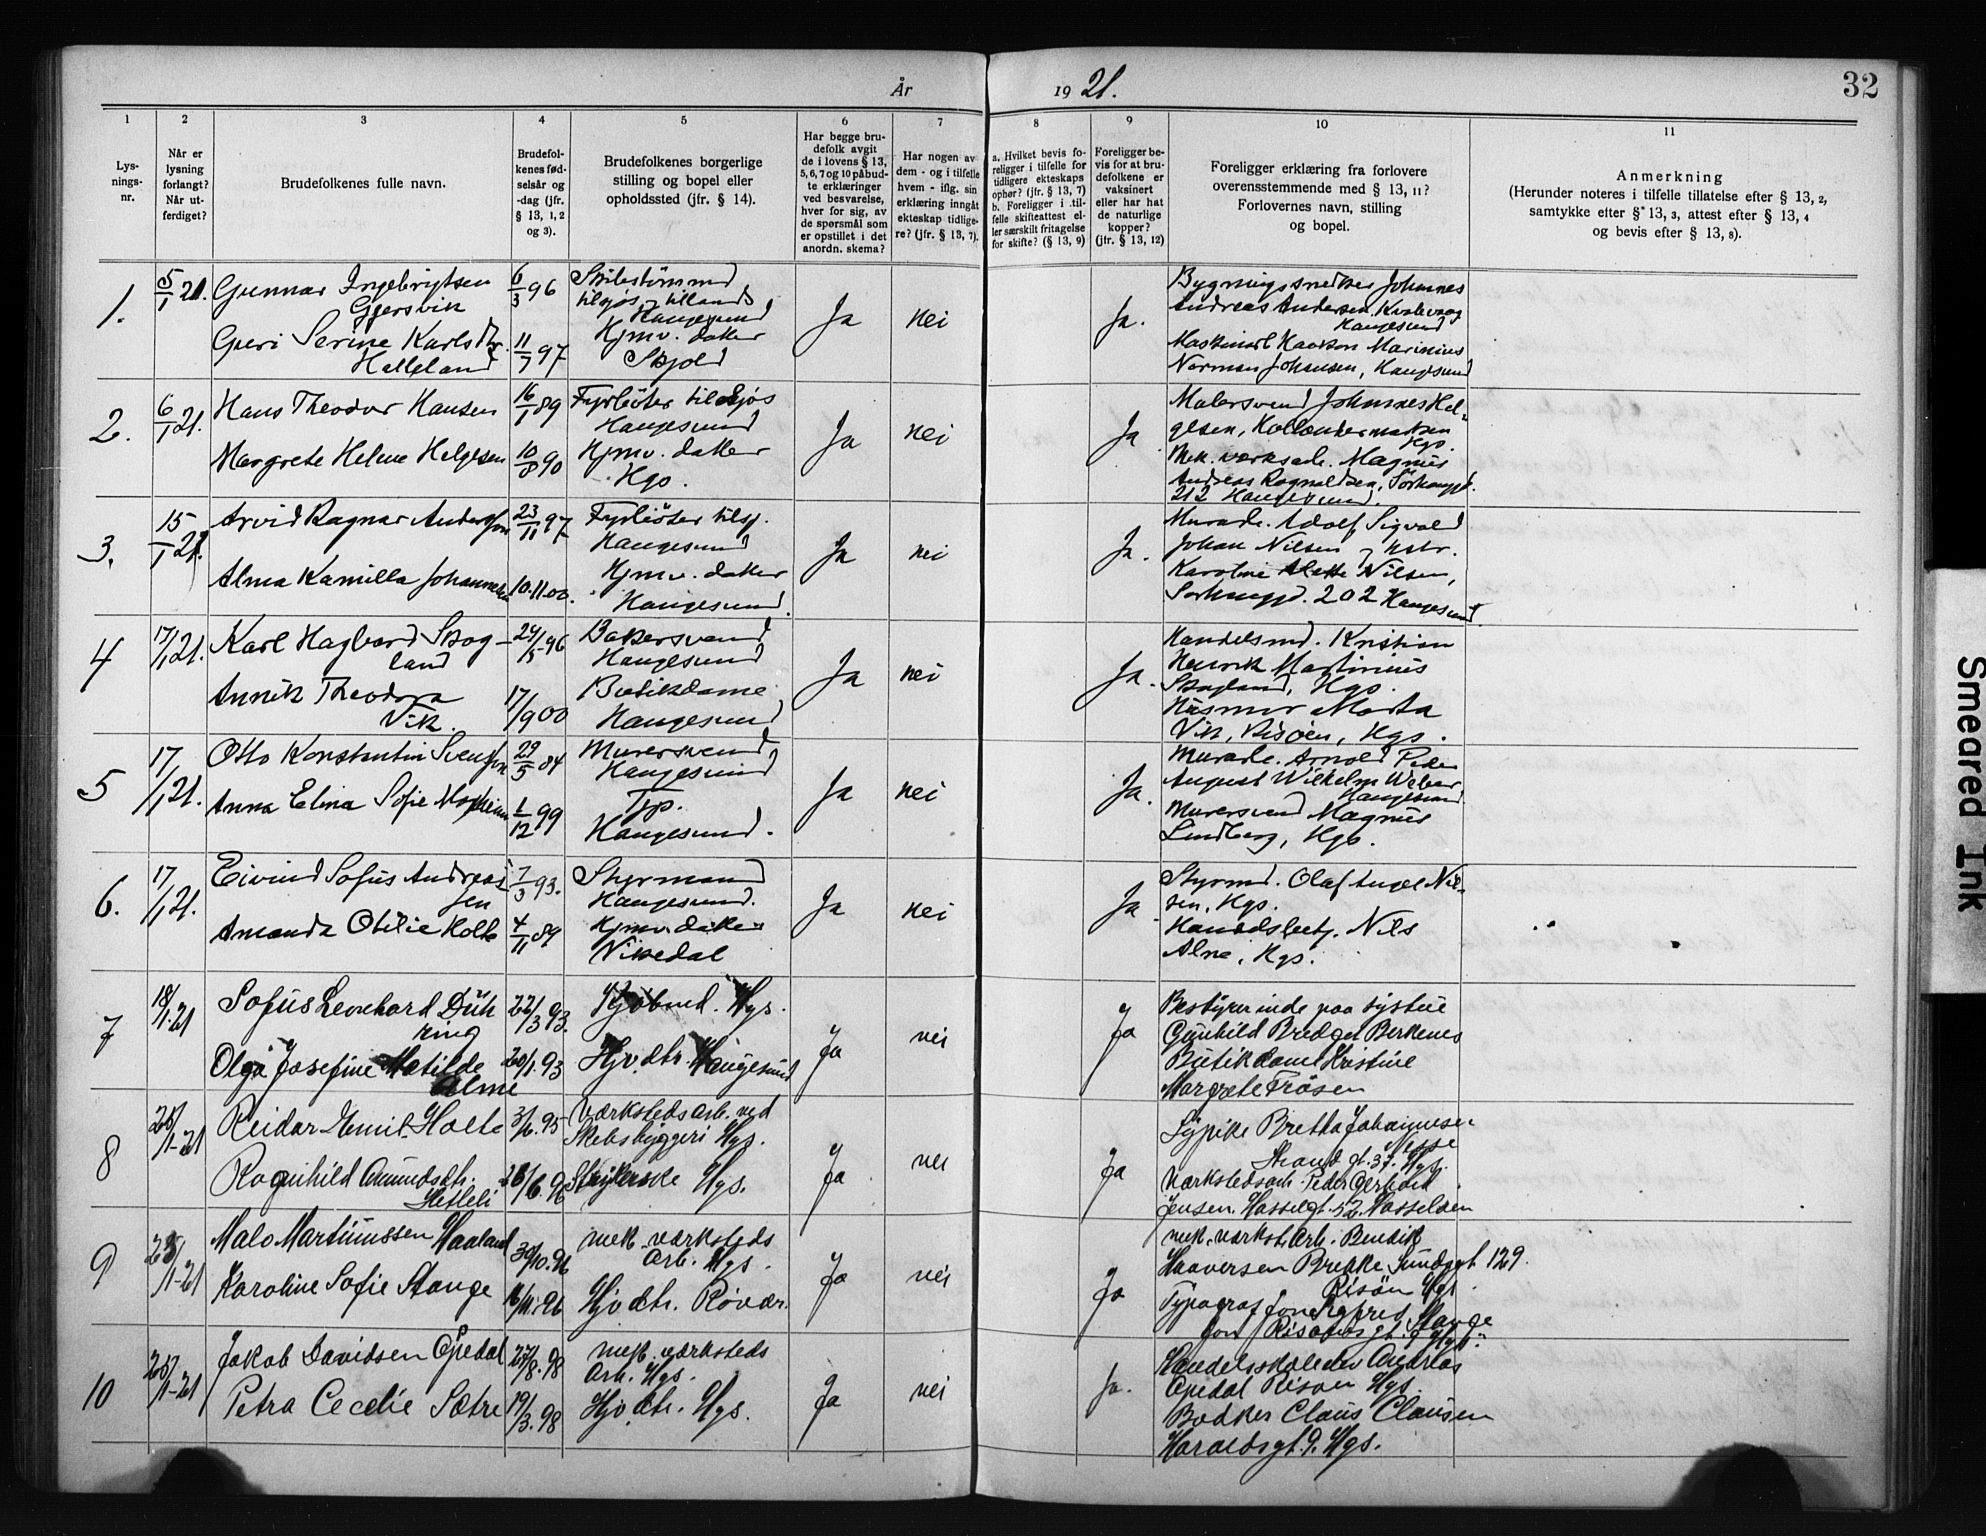 År 1921.
32
1 2 3 4 5 6 7 8 9 10 11
Lys-
nings-
nr.
Når er
lysning
forlangt?
Når ut-
ferdiget?
Brudefolkenes fulle navn.
Brudefol-
kenes fød-
selsår og
-dag (jfr.
§ 13, 1, 2
og 3).
Brudefolkenes borgerlige
stilling og bopel eller
opholdssted (jfr. § 14).
Har begge bru-
defolk avgit
de i lovens § 13,
5, 6, 7 og 10 påbud-
te erklæringer
ved besvarelse,
hver for sig, av
de spørsmål som
er opstillet i det
anordn. skema?
Har nogen av
dem - og i tilfelle
hvem - iflg. sin
erklæring inngåt
ekteskap tidlige-
re? (jfr. § 13, 7).
a. Hvilket bevis fo-
religger i tilfelle for
tidligere ekteskaps
ophør? (jfr. § 13, 7)
b. Foreligger i til-
felle skifteattest el-
ler særskilt fritagelse
for skifte? (§ 13, 9)
Foreligger be-
vis for at bru-
defolkene er
vaksinert
eller har hat
de naturlige
kopper?
(jfr. § 13, 12)
Foreligger erklæring fra forlovere
overensstemmende med § 13, 11?
Forlovernes navn, stilling
og bopel.
Anmerkning
(Herunder noteres i tilfelle tillatelse efter § 13, 2,
samtykke efter § 13, 3, attest efter § 13, 4
og bevis efter § 13, 8).
1.
5/1 21.
Gunnar Ingebrigtsen
Gjersvik
6/3 96
Skibstømmd
tilsjøs tillands
Haugesund
Guri Serine Karlsdtr.
Helleland
11/7 97
Hjmv. datter
Skjold
Ja
nei
Ja.
Bygningssnedker Johannes
Andreas Andersen Kvalevaag
Haugesund
Maskinarb Haakon Marinius
Norman Johansen, Haugesund
2.
6/1 21.
Hans Theodor Hansen
16/1 89
Fyrbøter tilsjøs
Haugesund
Margrete Helene Helgesen
10/8 90
Hjmv. datter
Hgs.
Ja
nei
Ja
Malersvend Johannes Hel-
gesen,
Hgs.
Mek. værksarb. Magnus
Andreas Ragnvaldsen, Sørhauggd.
212 Haugesund.
3.
15/1 21.
Arvid Ragnar Andersson
23/11 97
Fyrbøter tilsj.
Haugesund
Alma Kamilla Johannesen
10.11.00.
Hjmv. datter
Haugesund.
Ja
nei
Ja.
Murarb. Adolf Sigvald
Johan Nilsen hstr.
Karoline Nilsen,
Sørhauggd. 202 Haugesund.
4
17/1 21.
Karl Hagbard Skog-
land
24/5 96
Bakersvend
Haugesund
Annik Theodora
Vik.
17/9 00
Butikdame
Haugesund
Ja
nei
Ja.
Handelsmd. Kristian
Henrik Martinius
Skogland, Hgs.
Husmor Marta
Vik, Risøen, Hgs.
5
17/1 21.
Otto Konstantin Svensson
29/5 84
Murersvend
Haugesund
Anna Elina Sofie
1/12 99
Tjp.
Haugesund.
Ja
nei
Ja.
Murarb. Arnold Peder
August Wilhelm Weber
Haugesund
Murersvend Magnus
Lindberg, Hgs.
6.
17/1 21.
Eivind Sofus Andreas-
sen
7/3 93.
Styrmand
Haugesund.
Amanda Otilie Holte
4/11 89
Hjmv. datter
Vikedal
Ja
nei
Ja
Styrmd. Olaf Nil-
sen, Hgs.
Handelsbetj. Nils
Alne, Hgs.
7
18/1.21
Sofus Leonhard Düh
ring
22/3 93.
Kjøbmd. Hgs.
Olga Josefine Matilde
Alme
20/1.93
Hjv.dtr. Haugesund
Ja
nei
Ja
Bestyrerinde paa systue
Gunhild Bredget Birkenes
Butikdame Kristine
Margrete Frøsen
8
25/1-21
Reidar Emil Holte
3/6.95
Værkstedsarb. ved
Skibsbyggeri Hgs.
Ragnhild Amundsdtr.
Hetleli
26/6.96
Strykerske Hgs.
Ja
nei
Ja
Sypike Bretha Johannesen
Nesse
Strand gt. 37. Hgs.
Værkstedsarb. Peder Gerhard
Jensen. Hasselgt. 52. Hasseløen
9
25/1-21
Malo Martinussen Haaland
30/10.96
mek. værksteds
Arb. Hgs.
Karoline Sofie Stange
16/11.96
Hjv.dtr. Røvær.
Ja
nei
Ja
mek. værkst. Arb. Bendik
Haaversen Brekke Sundgt 129.
Risøn Hgs.
Typograf Sigfred Stange
Risøen gt. 9 Hgs.
10
25/1-21
Jakob Davidsen Opedal
27/8.98
mek. værksteds
Arb. Hgs.
Petra Cecelie Sætre
19/3.98
Hjv.dtr. Hgs.
Ja
nei
Ja.
Handelsskoleelev Andreas
Opedal Risøen Hgs.
Bødker Claus Clausen
Haraldsgt. 9. Hgs.
Smeared Ink